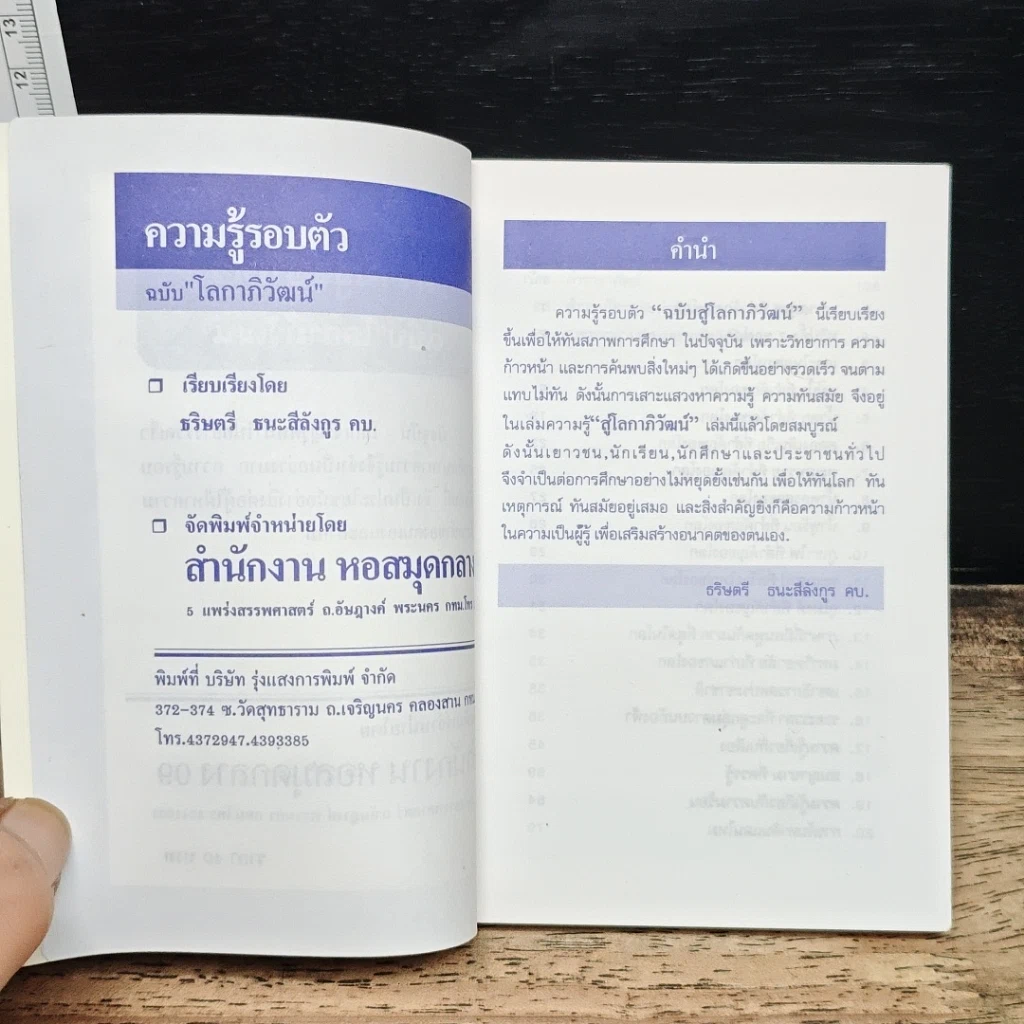 13
12
ความรู้รอบตัว
ฉบับ"โลกาภิวัฒน์"
❐ เรียบเรียงโดย
ธริษตรี ธนะสีลังกูร คบ.
❐ จัดพิมพ์จำหน่ายโดย
สำนักงาน หอสมุดกลาง
5 แพร่งสรรพศาสตร์ ถ.อัษฎางค์ พระนคร กทม.โทร
พิมพ์ที่ บริษัท รุ่งแสงการพิมพ์ จำกัด
372-374 ซ.วัดสุทธาราม ถ.เจริญนคร คลองสาน กทม
โทร.4372947.4393385
คำนำ
ความรู้รอบตัว “ฉบับสู่โลกาภิวัฒน์” นี้เรียบเรียง
ขึ้นเพื่อให้ทันสภาพการศึกษา ในปัจจุบัน เพราะวิทยาการ ความ
ก้าวหน้า และการค้นพบสิ่งใหม่ๆ ได้เกิดขึ้นอย่างรวดเร็ว จนตาม
แทบไม่ทัน ดังนั้นการเสาะแสวงหาความรู้ ความทันสมัย จึงอยู่
ในเล่มความรู้“สู่โลกาภิวัฒน์” เล่มนี้แล้วโดยสมบูรณ์
ดังนั้นเยาวชน,นักเรียน,นักศึกษาและประชาชนทั่วไป
จึงจำเป็นต่อการศึกษาอย่างไม่หยุดยั้งเช่นกัน เพื่อให้ทันโลก ทัน
เหตุการณ์ ทันสมัยอยู่เสมอ และสิ่งสำคัญยิ่งก็คือความก้าวหน้า
ในความเป็นผู้รู้ เพื่อเสริมสร้างอนาคตของตนเอง.
ธริษตรี ธนะสีลังกูร คบ.